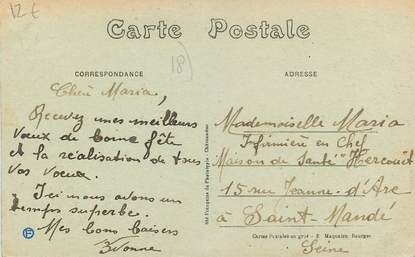 12€
Carte Postale
18
CORRESPONDANCE
ADRESSE
Cheri Maria,
Recevez mes meilleurs
vœux de bonne fête
et la réalisation de tous
vos vœux.
Ici nous avons un
temps superbe.
Mes bons baisers
Yvonne
Mademoiselle Maria
Infirmière en Chef
Maison de Santé "Hercouët
15 rue Jeanne-d'Arc
à Saint-Mandé
Cartes Postales en gros - E. Maquaire, Bourges
Seine
Sté Française de Phototypie - Châteaudun